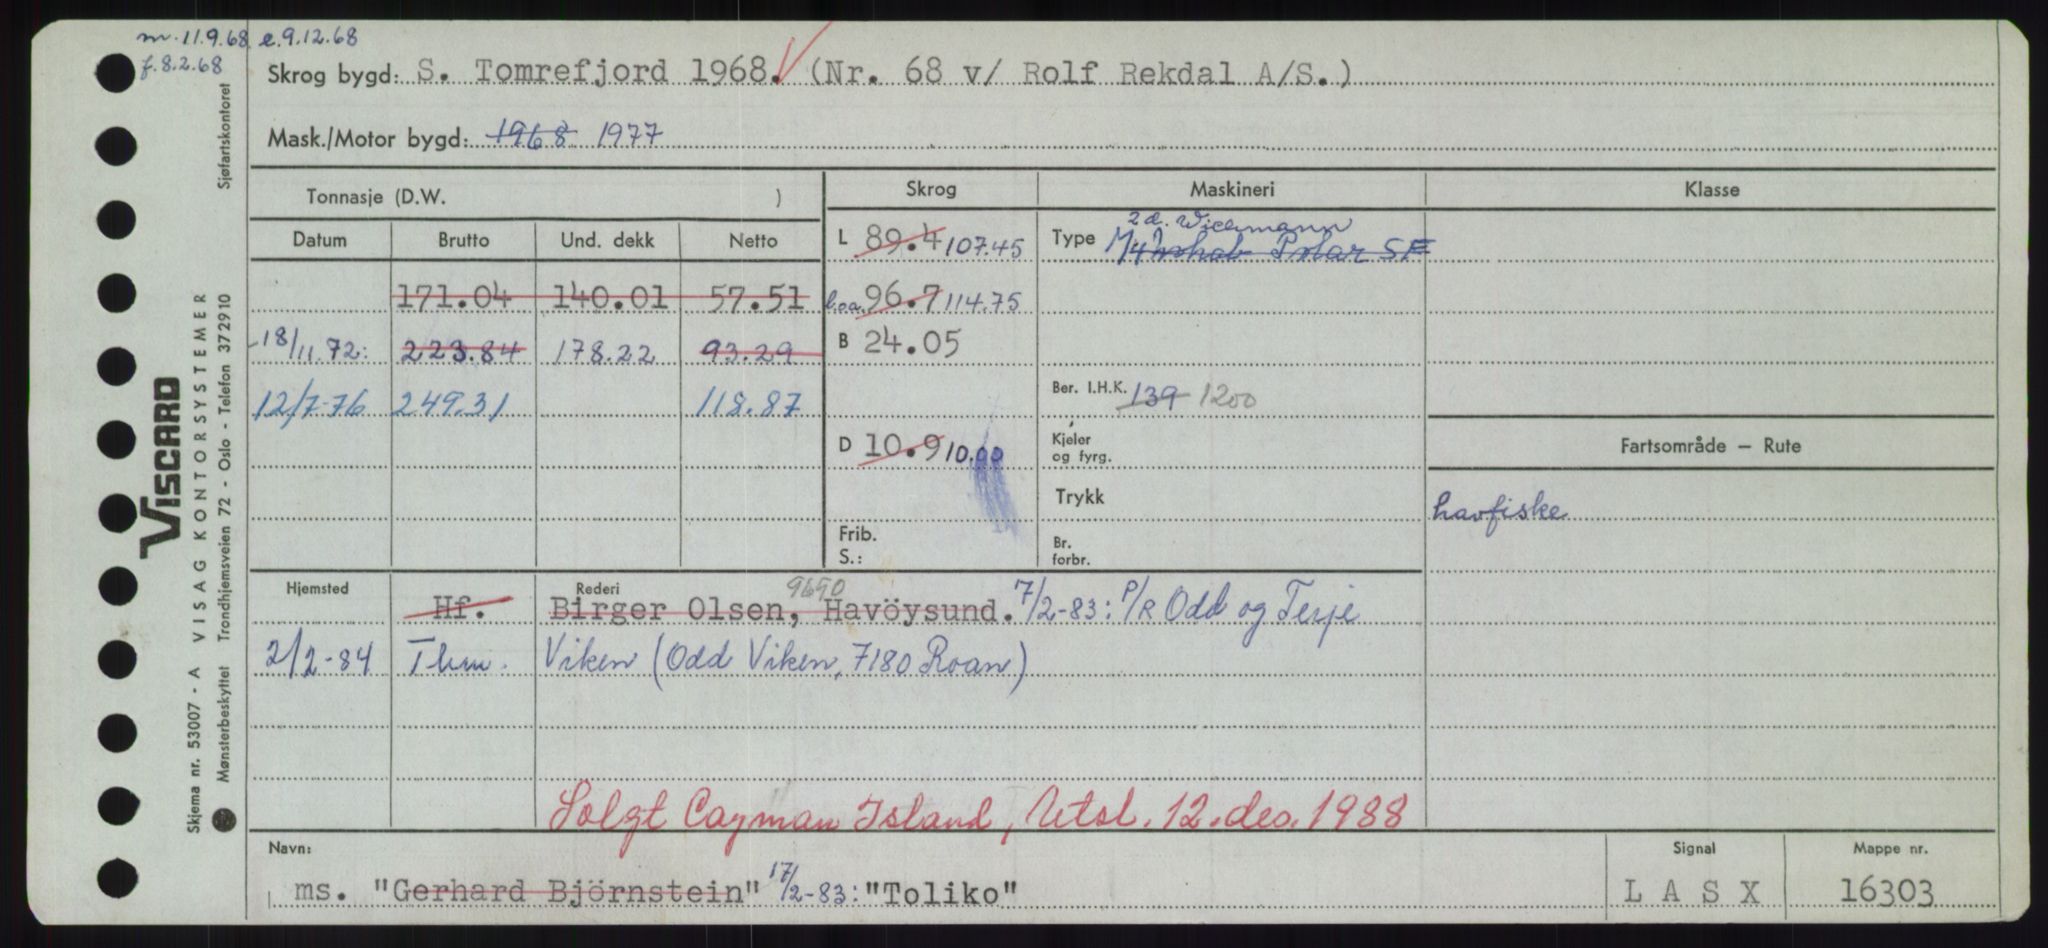 m. 11.9.68 e. 9.12.68
f. 8.2.68
Skrog bygd: S. Tomrefjord 1968. (Nr. 68 v/ Rolf Rekdal A/S.)
Mask./Motor bygd: 1968 1977
Tonnasje (D.W. )
Skrog Maskineri Klasse
Datum Brutto Und. dekk Netto
L 89.4 107.45
Type 2 d. Wichmann
Polar SF
171.04 140.01 57.51
l.o.a. 96.7 114.75
18/11 72: 223.84 178.22 93.29
B 24.05
12/7-76 249.31 118.87
Ber. I.H.K. 139 1200
D 10.9 10.00
Kjeler
og fyrg.
Fartsområde — Rute
Trykk
havfiske
Frib.
S.:
Br.
forbr.
Hjemsted Rederi 9690
Hf. Birger Olsen, Havöysund. 7/2-83: P/R Odd og Terje
2/2-84 Thm. Viken (Odd Viken, 7180 Roan)
Solgt Cayman Island, Utsl. 12. des. 1988
Navn: Signal Mappe nr.
ms. "Gerhard Björnstein" 17/2-83: "Toliko" L A S X 16303
VISCARD
Skjema nr. 53007 - A VISAG KONTORSYSTEMER Sjøfartskontoret
Mønsterbeskyttet Trondhjemsveien 72 - Oslo - Telefon 372910